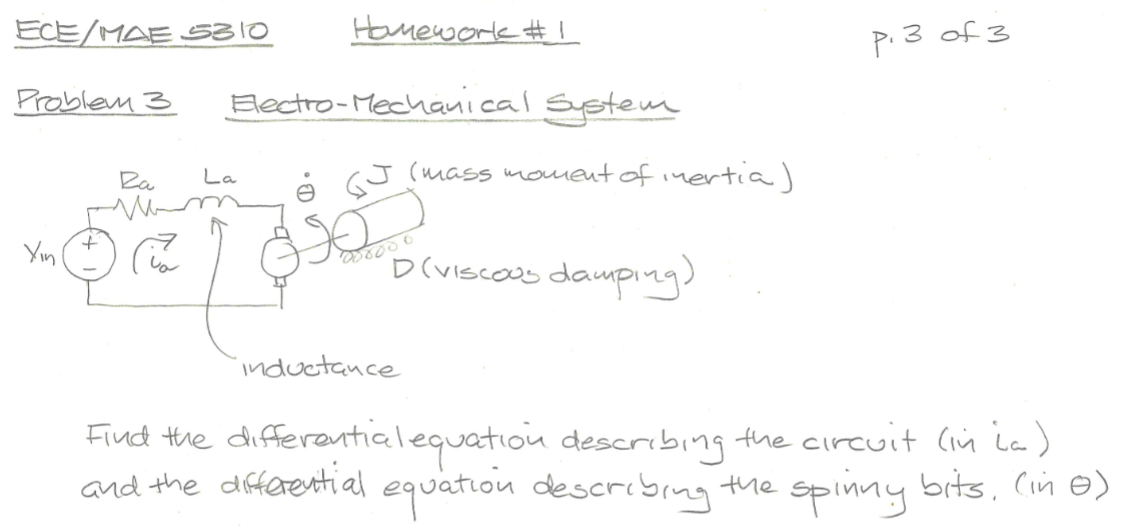 ECE/MAE 5310 Homework #1 p. 3 of 3
Problem 3 Electro-Mechanical System
Ra La θ̇ J (mass moment of inertia)
Vin + - ia D (viscous damping)
inductance
Find the differential equation describing the circuit (in ia)
and the differential equation describing the spinny bits. (in θ)